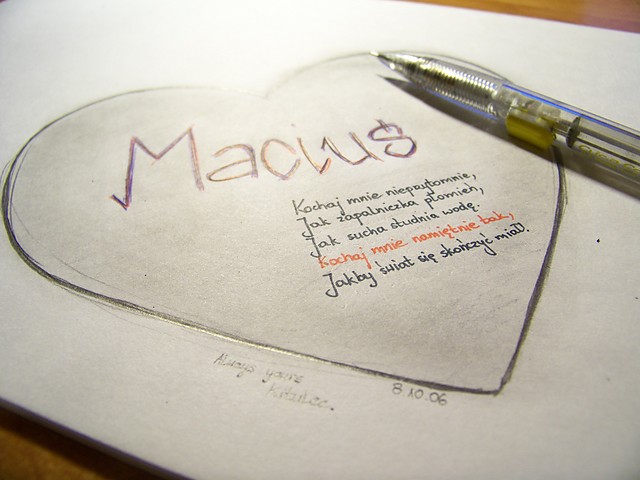 Maciuś
Kochaj mnie nieprzytomnie,
Jak zapalniczka płomień,
Jak sucha studnia wodę.
Kochaj mnie namiętnie tak,
Jakby świat się skończyć miał!
Always yours
8.10.06